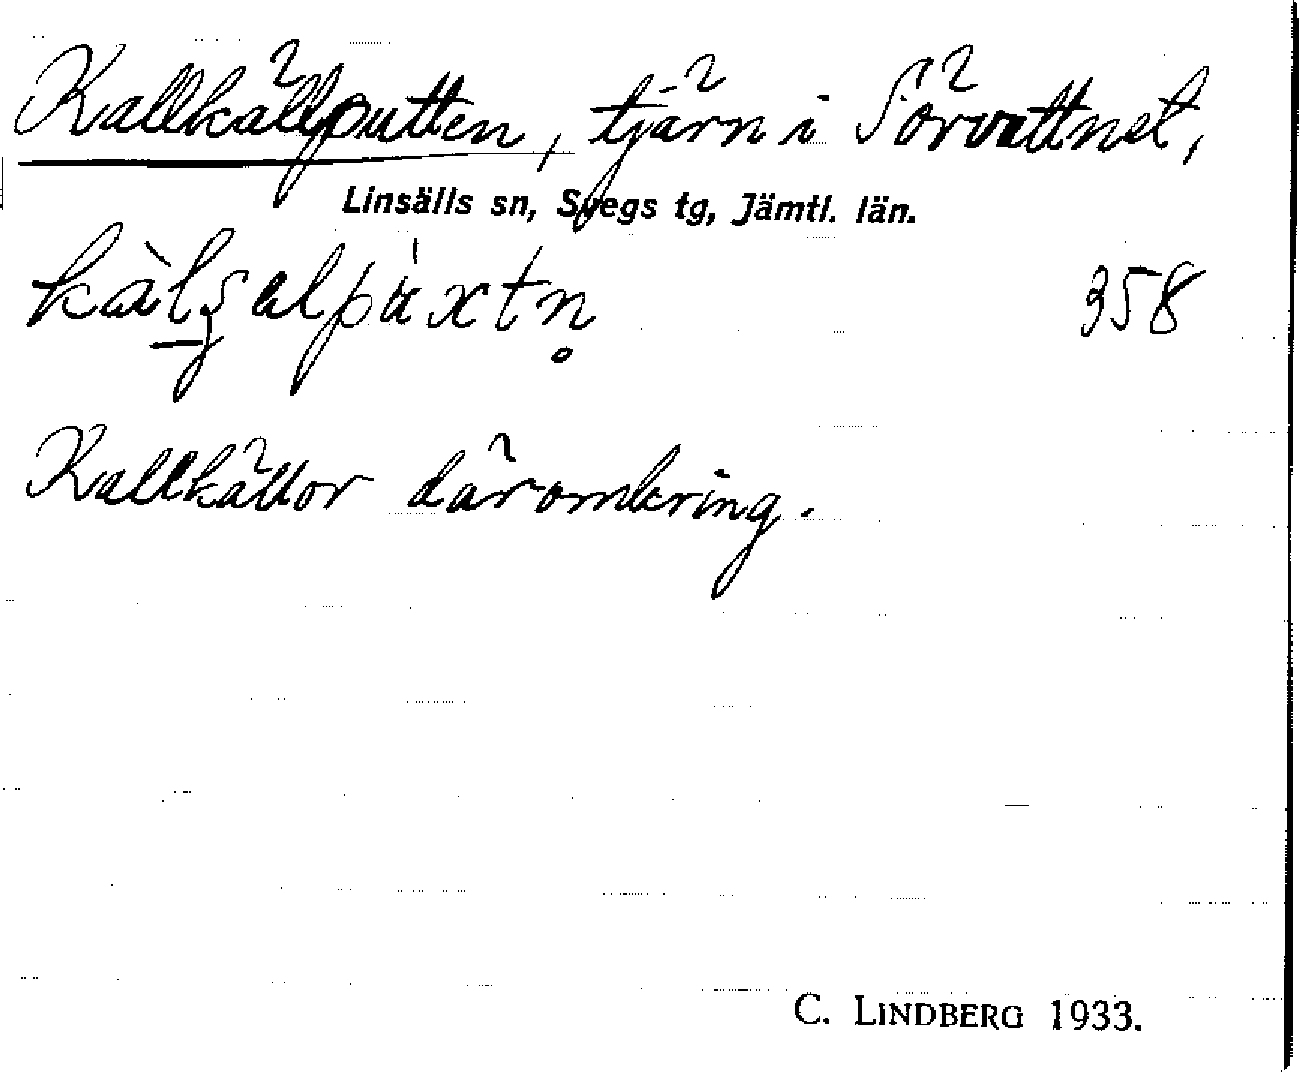 Kallkällputten, tjärn i Sörvattnet,
Linsälls sn, Svegs tg, Jämtl. län.
358
Kallkällor däromkring.
C. LINDBERG 1933.